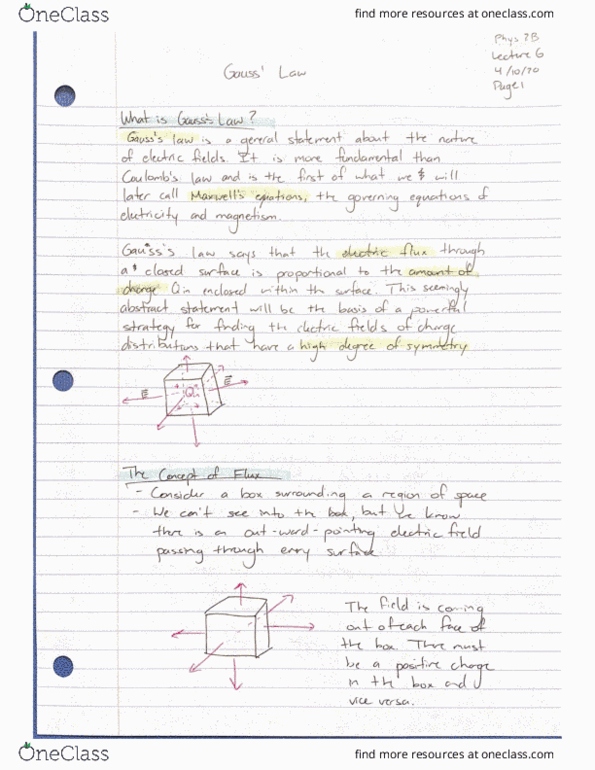 OneClass
find more resources at oneclass.com
Phys 2B
Lecture 6
4/10/20
Page 1
Gauss' Law
What is Gauss's Law?
Gauss's law is a general statement about the nature
of electric fields. It is more fundamental than
Coulomb's law and is the first of what we will
later call Maxwell's equations, the governing equations of
eletricity and magnetism.
Gauss's law says that the electric flux through
a closed surface is proportional to the amount of
charge Qin enclosed within the surface. This seemingly
abstract statement will be the basis of a powerful
strategy for finding the electric fields of charge
distributions that have a high degree of symmetry
E
Q
E
The Concept of Flux
- Consider a box surrounding a region of space
- We can't see into the box, but we know
there is an out-ward-pointing electric field
passing through every surface
The field is coming
out of each face of
the box. There must
be a positive charge
in the box and
vice versa.
OneClass
find more resources at oneclass.com